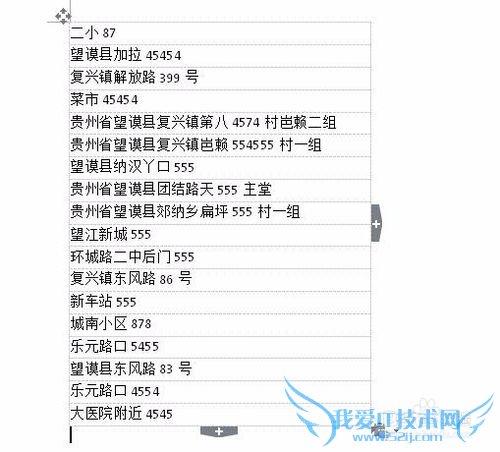 二小 87
望谟县加拉 45454
复兴镇解放路 399 号
菜市 45454
贵州省望谟县复兴镇第八 4574 村岜赖二组
贵州省望谟县复兴镇岜赖 554555 村一组
望谟县纳汉丫口 555
贵州省望谟县团结路天 555 主堂
贵州省望谟县郊纳乡扁坪 555 村一组
望江新城 555
环城路二中后门 555
复兴镇东风路 86 号
新车站 555
城南小区 878
乐元路口 5455
望谟县东风路 83 号
乐元路口 4554
大医院附近 4545
我爱IT技术网
www.52ij.com